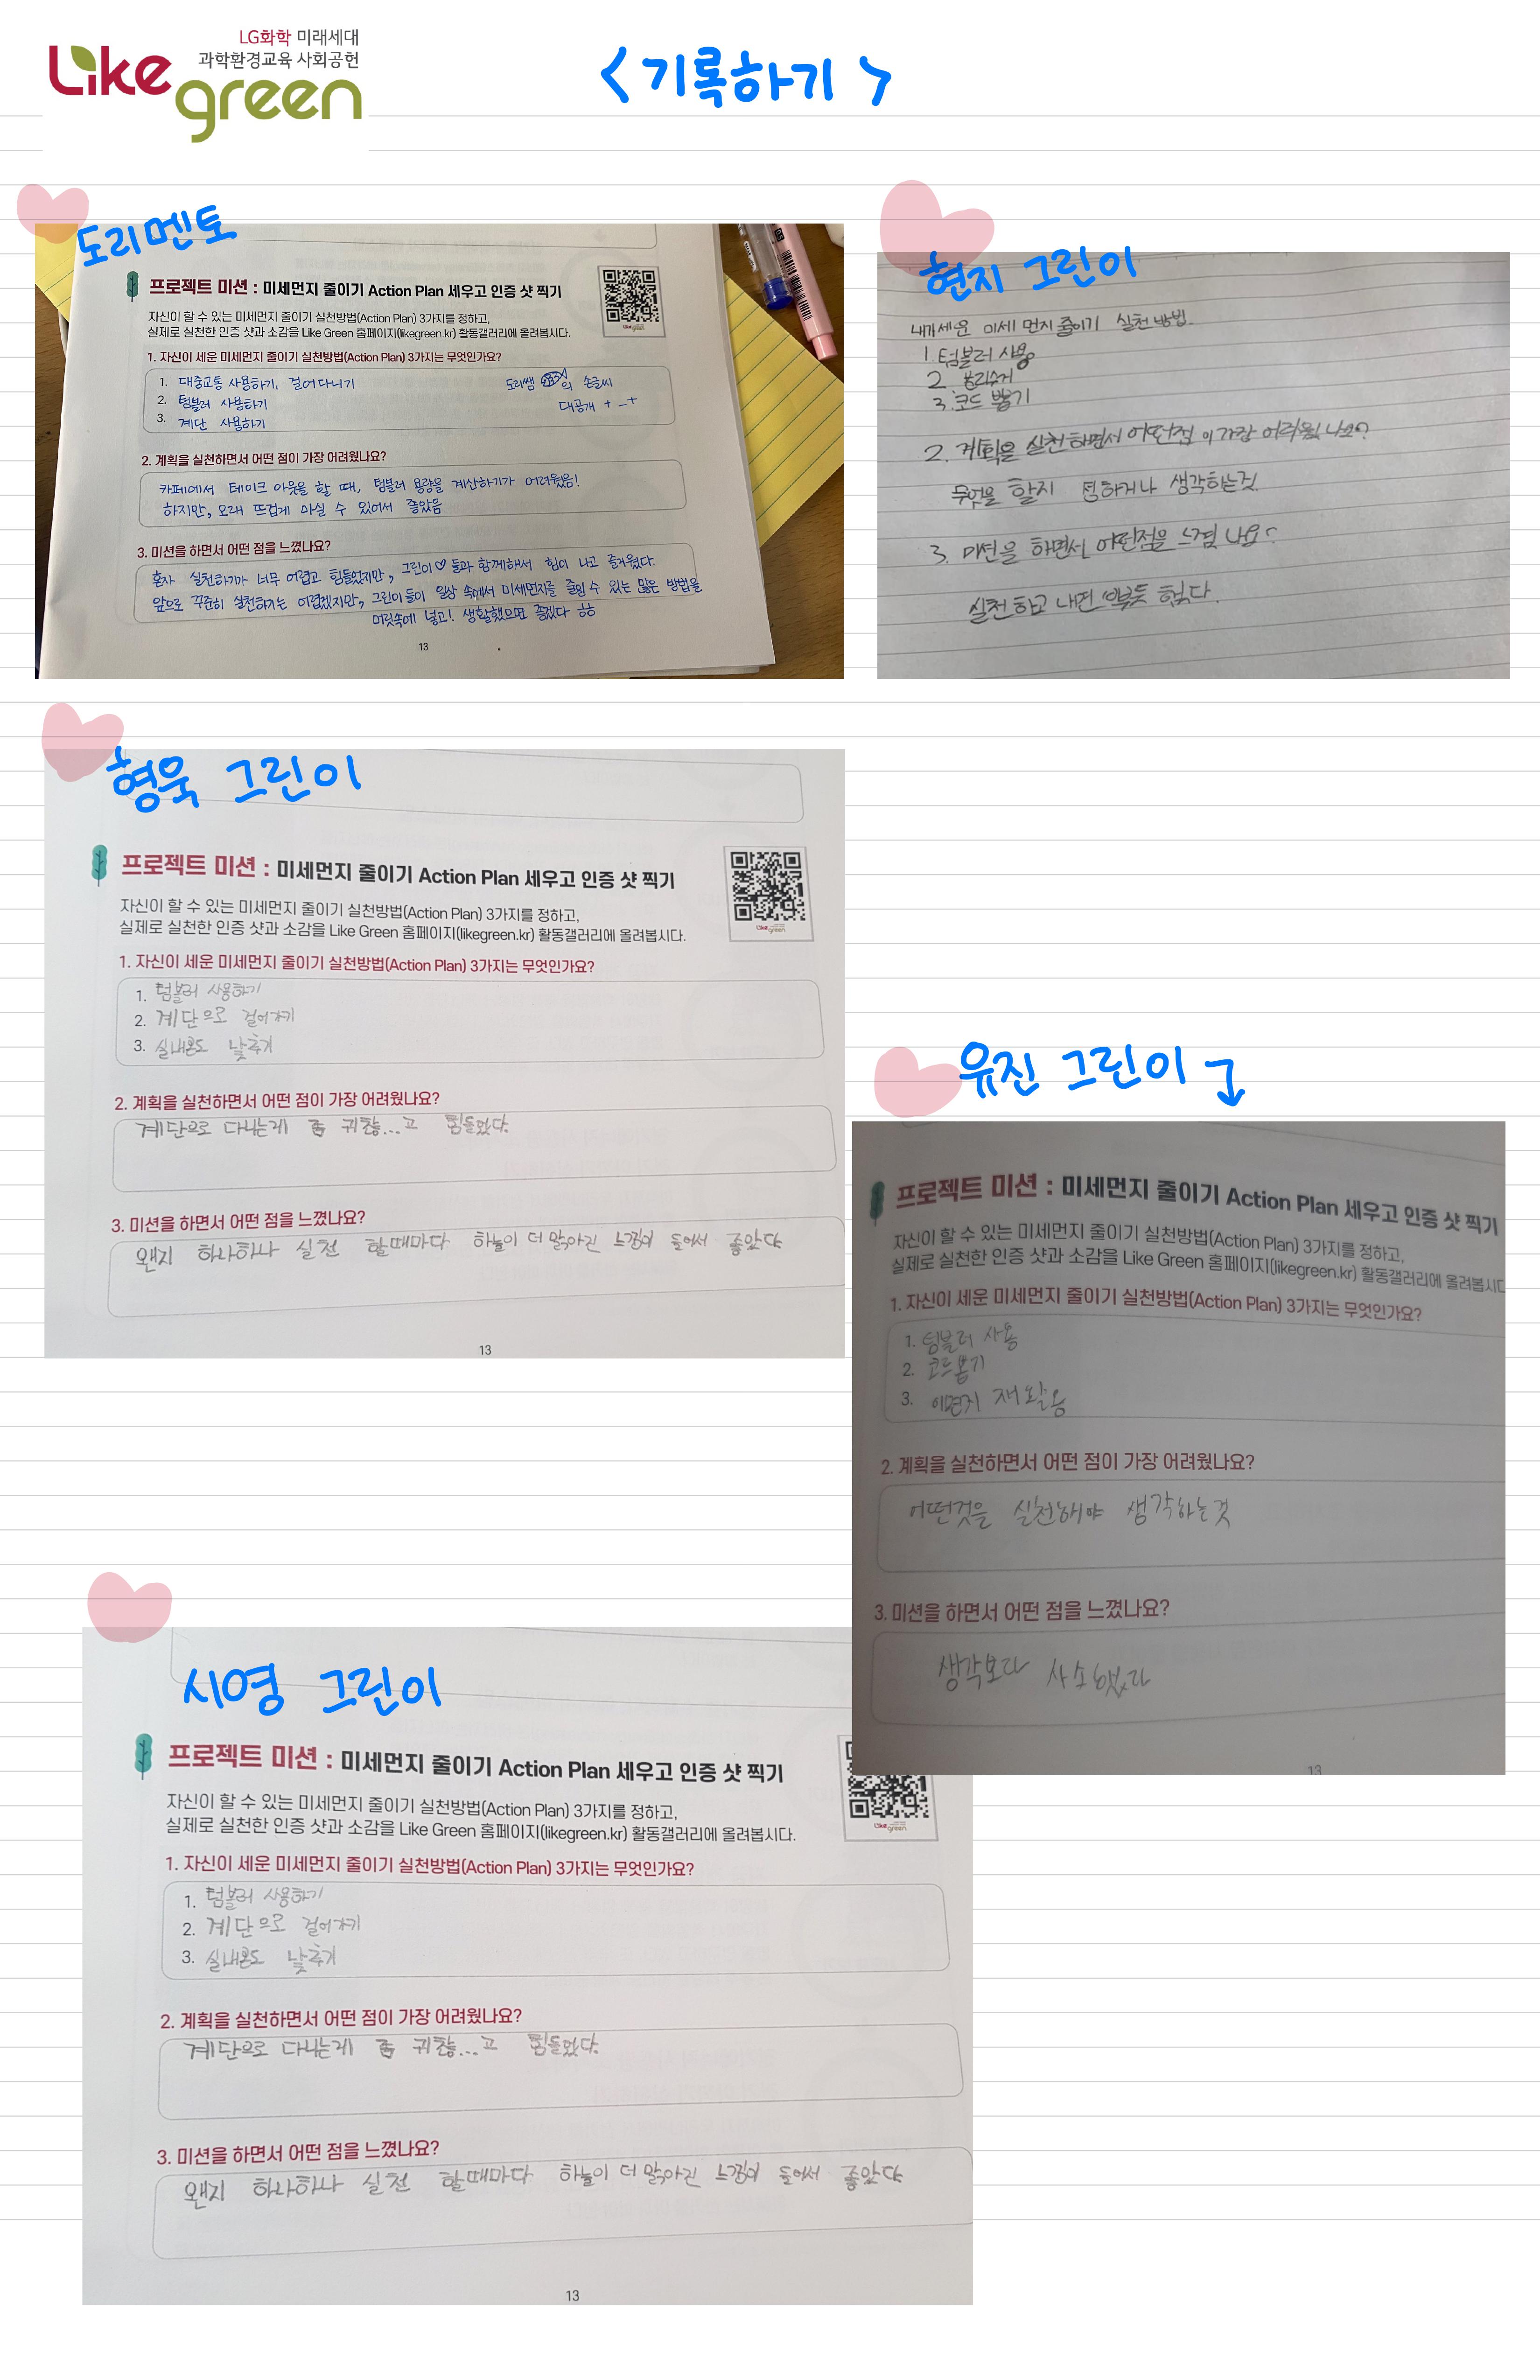 LG화학 미래세대
과학환경교육 사회공헌
Like green
<기록하기>
도리멘토
프로젝트 미션 : 미세먼지 줄이기 Action Plan 세우고 인증 샷 찍기
자신이 할 수 있는 미세먼지 줄이기 실천방법(Action Plan) 3가지를 정하고,
실제로 실천한 인증 샷과 소감을 Like Green 홈페이지(likegreen.kr) 활동갤러리에 올려봅시다.
1. 자신이 세운 미세먼지 줄이기 실천방법(Action Plan) 3가지는 무엇인가요?
1. 대중교통 사용하기, 걸어다니기
2. 텀블러 사용하기
3. 계단 사용하기
도리쌤의 손글씨
대공개 + _ +
2. 계획을 실천하면서 어떤 점이 가장 어려웠나요?
카페에서 테이크 아웃을 할 때, 텀블러 용량을 계산하기가 어려웠음!
하지만, 오래 뜨겁게 마실 수 있어서 좋았음
3. 미션을 하면서 어떤 점을 느꼈나요?
혼자 실천하기가 너무 어렵고 힘들었지만, 그린이♡들과 함께해서 힘이 나고 즐거웠다.
앞으로 꾸준히 실천하기는 어렵겠지만, 그린이들이 일상 속에서 미세먼지를 줄일 수 있는 많은 방법을
머릿속에 넣고! 생활했으면 좋겠다 ㅎㅎ
13
현지 그린이
내가세운 미세먼지 줄이기 실천 방법
1. 텀블러 사용
2. 분리수거
3. 코드 뽑기
2. 계획을 실천하면서 어떤점이 가장 어려웠나요?
무엇을 할지 정하거나 생각하는것.
3. 미션을 하면서 어떤점을 느꼈나요?
실천하고 내면 뿌듯 했다.
형욱 그린이
프로젝트 미션 : 미세먼지 줄이기 Action Plan 세우고 인증 샷 찍기
자신이 할 수 있는 미세먼지 줄이기 실천방법(Action Plan) 3가지를 정하고,
실제로 실천한 인증 샷과 소감을 Like Green 홈페이지(likegreen.kr) 활동갤러리에 올려봅시다.
Like green
1. 자신이 세운 미세먼지 줄이기 실천방법(Action Plan) 3가지는 무엇인가요?
1. 텀블러 사용하기
2. 계단으로 걸어가기
3. 실내온도 낮추기
2. 계획을 실천하면서 어떤 점이 가장 어려웠나요?
계단으로 다니는게 좀 귀찮...고 힘들었다.
3. 미션을 하면서 어떤 점을 느꼈나요?
왠지 하나하나 실천 할때마다 하늘이 더 맑아진 느낌이 들어서 좋았다
13
유진 그린이
프로젝트 미션 : 미세먼지 줄이기 Action Plan 세우고 인증 샷 찍기
자신이 할 수 있는 미세먼지 줄이기 실천방법(Action Plan) 3가지를 정하고,
실제로 실천한 인증 샷과 소감을 Like Green 홈페이지(likegreen.kr) 활동갤러리에 올려봅시
1. 자신이 세운 미세먼지 줄이기 실천방법(Action Plan) 3가지는 무엇인가요?
1. 텀블러 사용
2. 코드뽑기
3. 이면지 재활용
2. 계획을 실천하면서 어떤 점이 가장 어려웠나요?
어떤것을 실천해야 생각하는것
3. 미션을 하면서 어떤 점을 느꼈나요?
생각보다 사소했다
13
시영 그린이
프로젝트 미션 : 미세먼지 줄이기 Action Plan 세우고 인증 샷 찍기
자신이 할 수 있는 미세먼지 줄이기 실천방법(Action Plan) 3가지를 정하고,
실제로 실천한 인증 샷과 소감을 Like Green 홈페이지(likegreen.kr) 활동갤러리에 올려봅시다.
Like green
1. 자신이 세운 미세먼지 줄이기 실천방법(Action Plan) 3가지는 무엇인가요?
1. 텀블러 사용하기
2. 계단으로 걸어가기
3. 실내온도 낮추기
2. 계획을 실천하면서 어떤 점이 가장 어려웠나요?
계단으로 다니는게 좀 귀찮...고 힘들었다.
3. 미션을 하면서 어떤 점을 느꼈나요?
왠지 하나하나 실천 할때마다 하늘이 더 맑아진 느낌이 들어서 좋았다
13